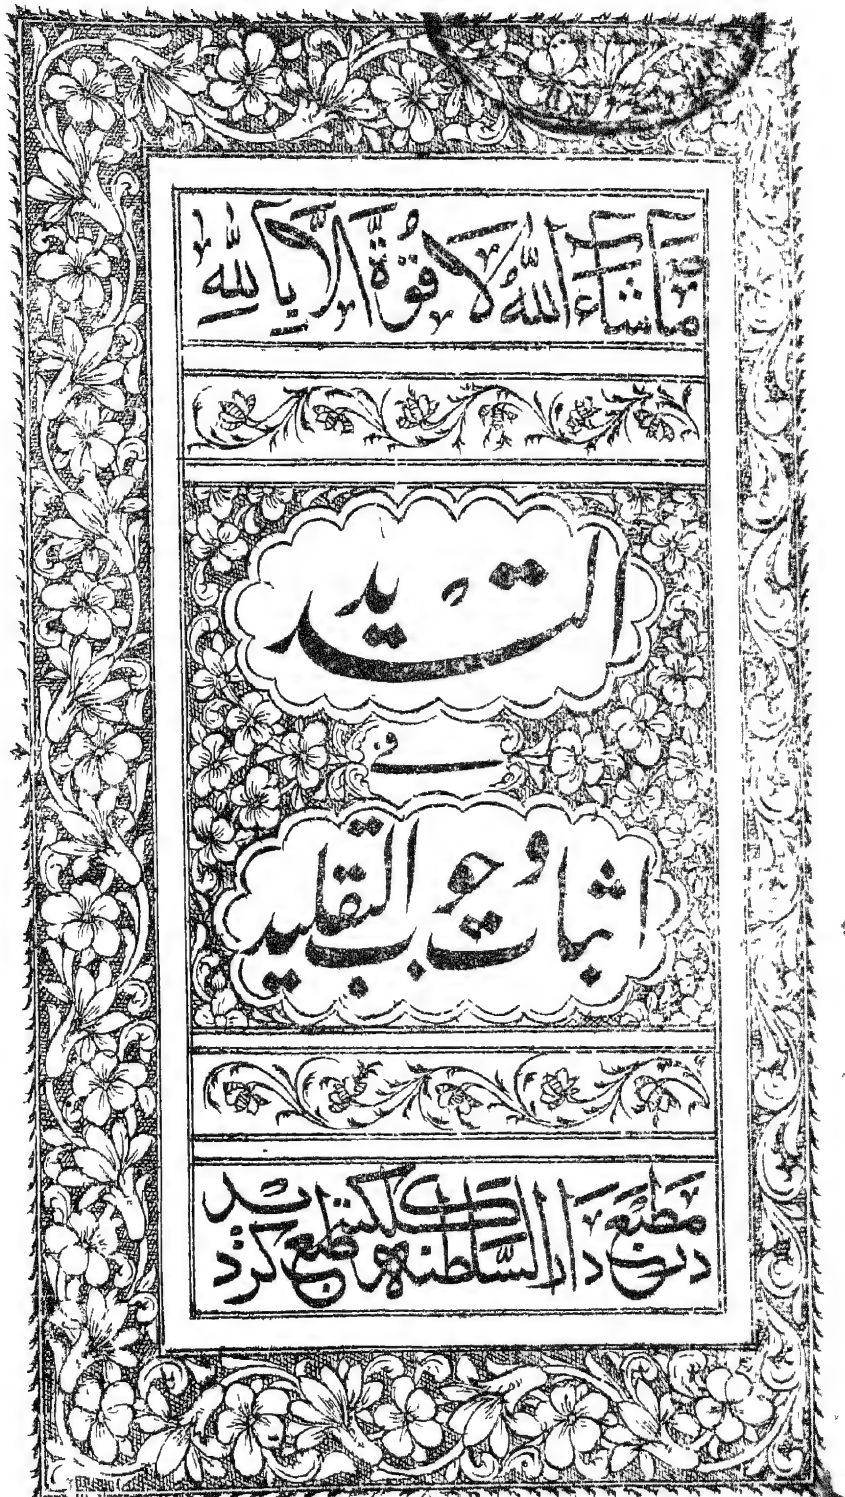 ماشاء اللهُ لا قُوَّةَ الّا بِاللهِ
التسدید
فی
اثبات وجوب التقلید
در مطبع دار السّلطنه کلکته طبع کردید